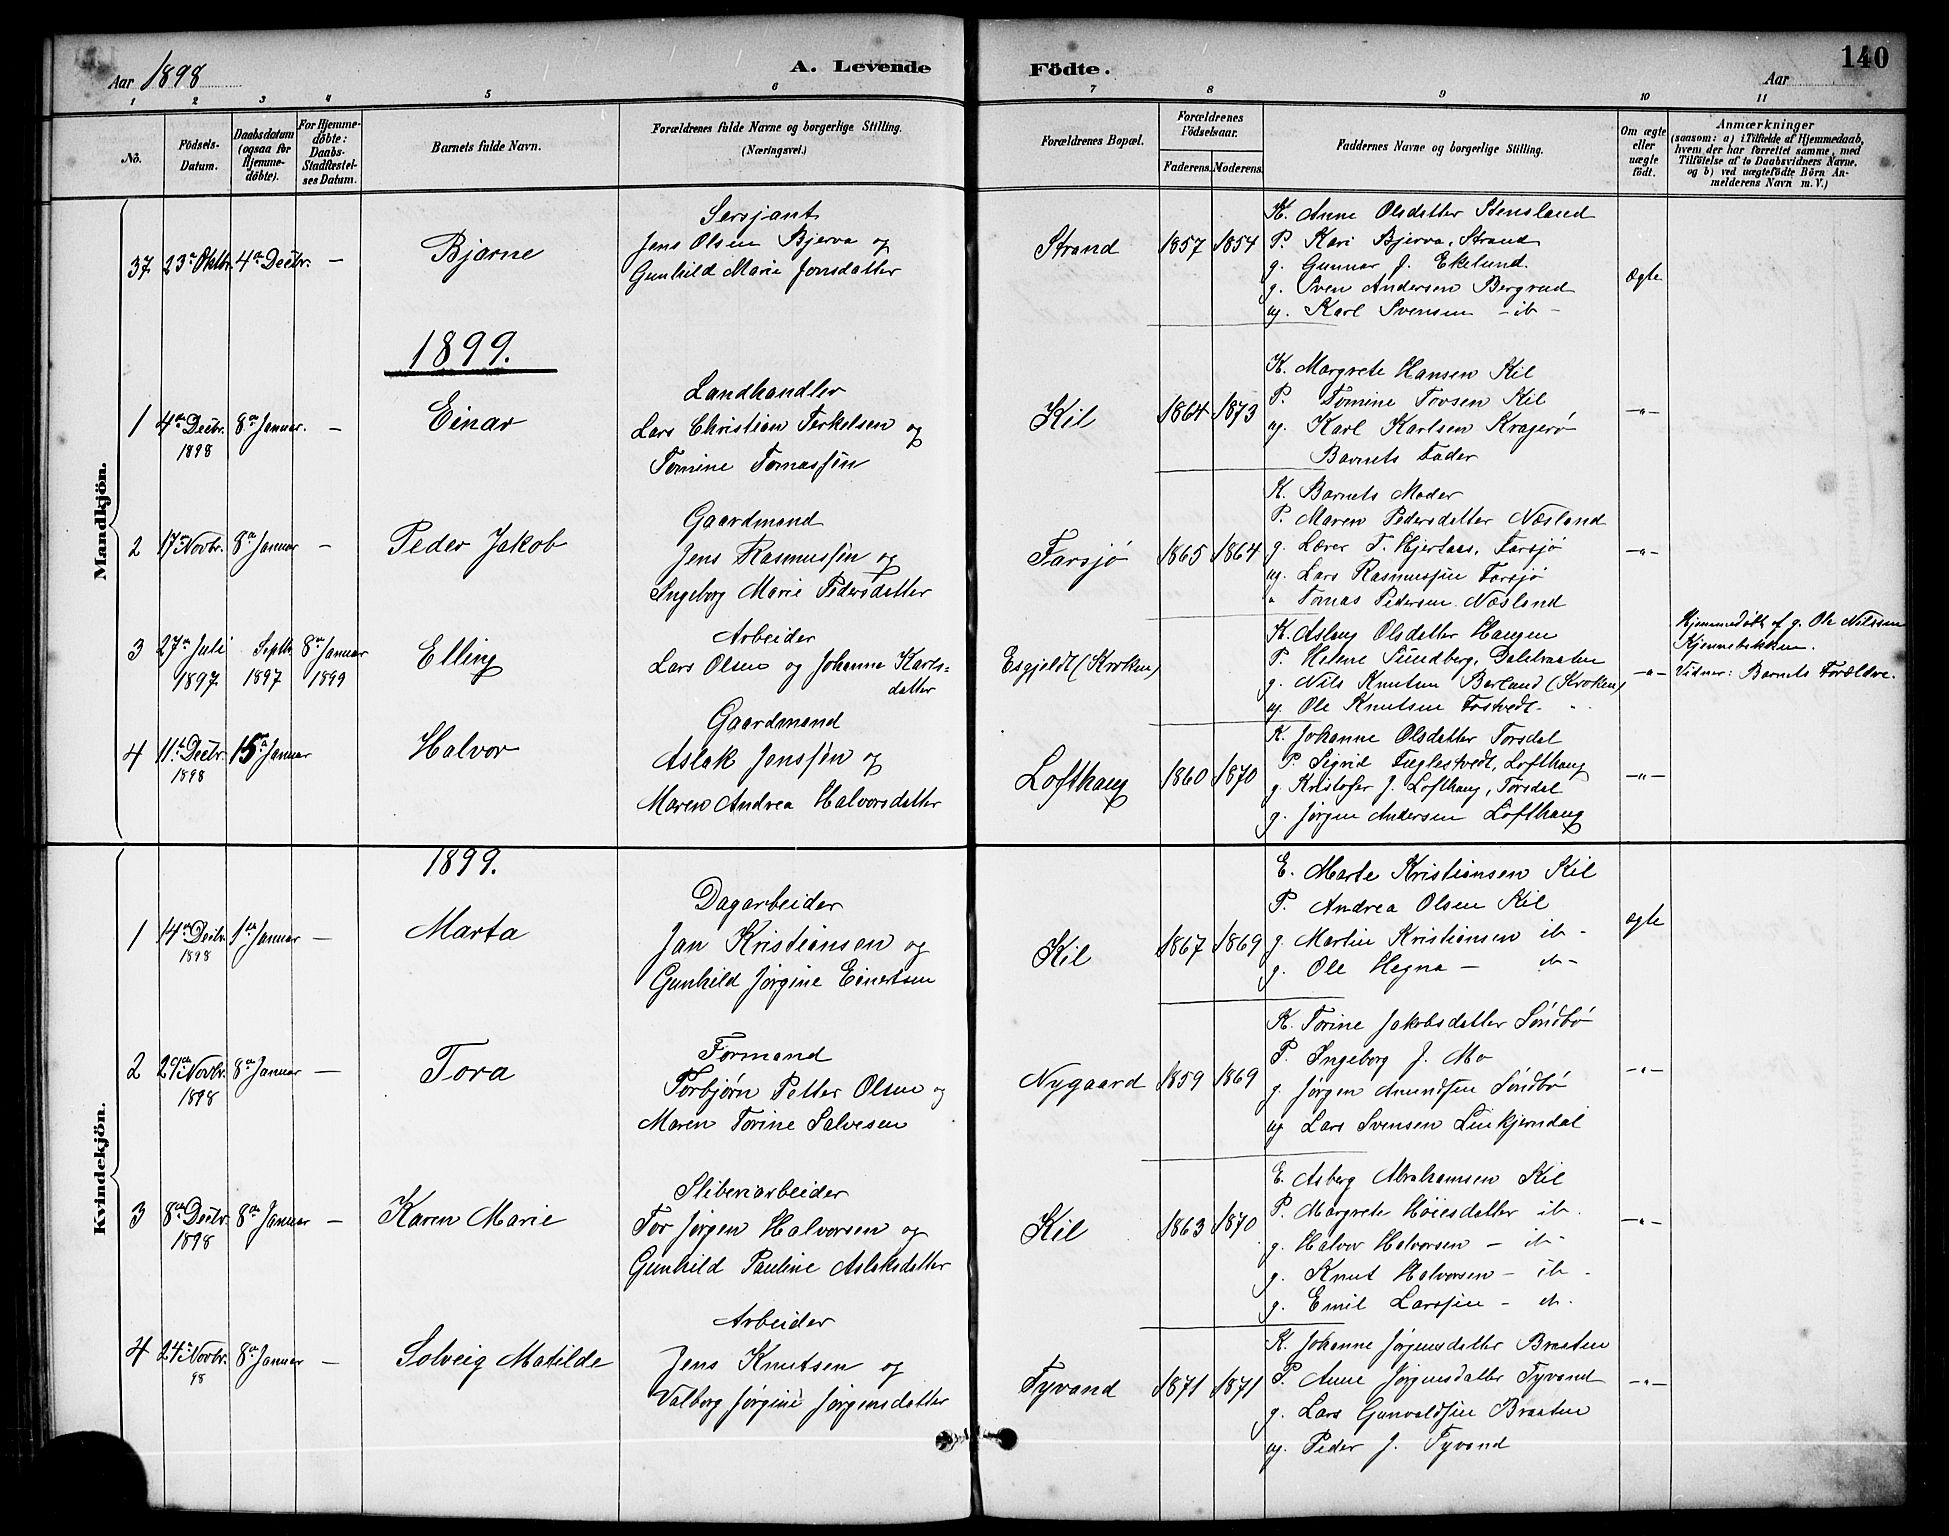 Aar 1898
A. Levende Födte.
Aar
140
1 2 3 4 5 6 7 8 9 10 11
No.
Födsels-Datum.
Daabsdatum (ogsaa for Hjemme-döbte).
For Hjemme-döbte: Daabs-Stadfæstel-ses Datum.
Barnets fulde Navn.
Forældrenes fulde Navne og borgerlige Stilling. (Næringsvei.)
Forældrenes Bopæl.
Forældrenes Födselsaar.
Faderens. Moderens.
Faddernes Navne og borgerlige Stilling.
Om ægte eller uægte födt.
Anmærkninger
(saasom: a) i Tilfælde af Hjemmedaab, hvem der har forrettet samme, med Tilföielse af to Daabsvidners Navne, og b) ved uægtefödte Börn An-melderens Navn m. V.)
Mandkjön.
37 23de Oktbr. 4de Decbr. –
Bjarne
Sersjant
Jens Olsen Bjerva og
Gunhild Marie Jonsdatter
Strand 1857 1854
K. Anne Olsdatter Stensland
P. Kari Bjerva, Strand
g. Gunnar J. Ekelund.
g. Sven Andersen Bergrud
ug. Karl Svensen – ib –
Ægte
1899.
1 4de Decbr. 1898 8de Januar. –
Einar
Landhandler
Lars Christian Terkelsen og
Tomine Tomassen
Kil 1864 1873
K. Margrete Hansen Kil
P. Tomine Tovsen Kil
ug. Karl Karlsen Kragerø
Barnets Fader
–"–
2 17de Novbr. 8de Januar –
Peder Jakob
Gaardmand
Jens Rasmussen og
Ingeborg Marie Pedersdatter
Farsjø 1865 1864
K. Barnets Moder
P. Maren Pedersdatter Næsland
g. Lærer T. Hjertaas, Farsjø
ug. Lars Rasmussen Farsjø
" Tomas Pedersen Næsland
–"–
3 27de Juli 1897. Septbr. 1897 8de Januar 1899
Elling
Arbeider
Lars Olsen og Johanne Karls-
datter
Esgjeldt (Kroken)
K. Aslaug Olsdatter Haugen
P. Helene Sundberg, Dalebraaten
g. Nils Knutsen Barland (Kroken)
ug. Ole Knutsen Tostvedt – "
–"–
Hjemmedøbt af g. Ole Nilssen
Kjennebekken.
Vidner: Barnets Forældre.
4 11te Decbr. 1898 15de Januar
Halvor
Gaardmand
Aslak Jenssen og
Maren Andrea Halvorsdatter
Lofthaug 1860 1870
K. Johanne Olsdatter Torsdal
P. Sigrid Fuglestvedt, Lofthaug
g. Kristofer J. Lofthaug, Torsdal
g. Jørgen Andersen Lofthaug
–"–
Kvindekjön.
1899.
1 14de Decbr. 1898 1ste Januar –
Marta
Dagarbeider
Jan Kristiansen og
Gunhild Jørgine Einertsen
Kil 1867 1869
E. Marte Kristiansen Kil
P. Andrea Olsen Kil
g. Martin Kristiansen ib –
g. Ole Hegna – ib –
ægte
2 29de Novbr. 1898 8de Januar –
Tora
Formand
Torbjørn Petter Olsen og
Maren Torine Salvesen
Nygaard 1859 1869
K. Torine Jakobsdatter Søndbø
P. Ingeborg J. Mo
g. Jørgen Amundsen Søndbø
ug Lars Svensen Linkjerndal
–"–
3 8de Decbr. 1898 8de Januar –
Karen Marie
Sliberiarbeider
Tor Jørgen Halvorsen og
Gunhild Pauline Aslaksdatter
Kil 1863 1870
E. Asberg Abrahamsen Kil
P. Margrete Høiesdatter ib.
g. Halvor Halvorsen – ib –
g. Knut Halvorsen – ib –
g. Emil Larssen – ib.
–"–
4 24de Novbr. 98 8de Januar –
Solveig Matilde
Arbeider
Jens Knutsen og
Valborg Jørgine Jørgensdatter
Tyvand 1871 1871
K. Johanne Jørgensdatter Braaten
P. Anne Jørgensdatter Tyvand
g. Lars Gunvaldsen Braaten
ug. Peder J. Tyvand
–"–